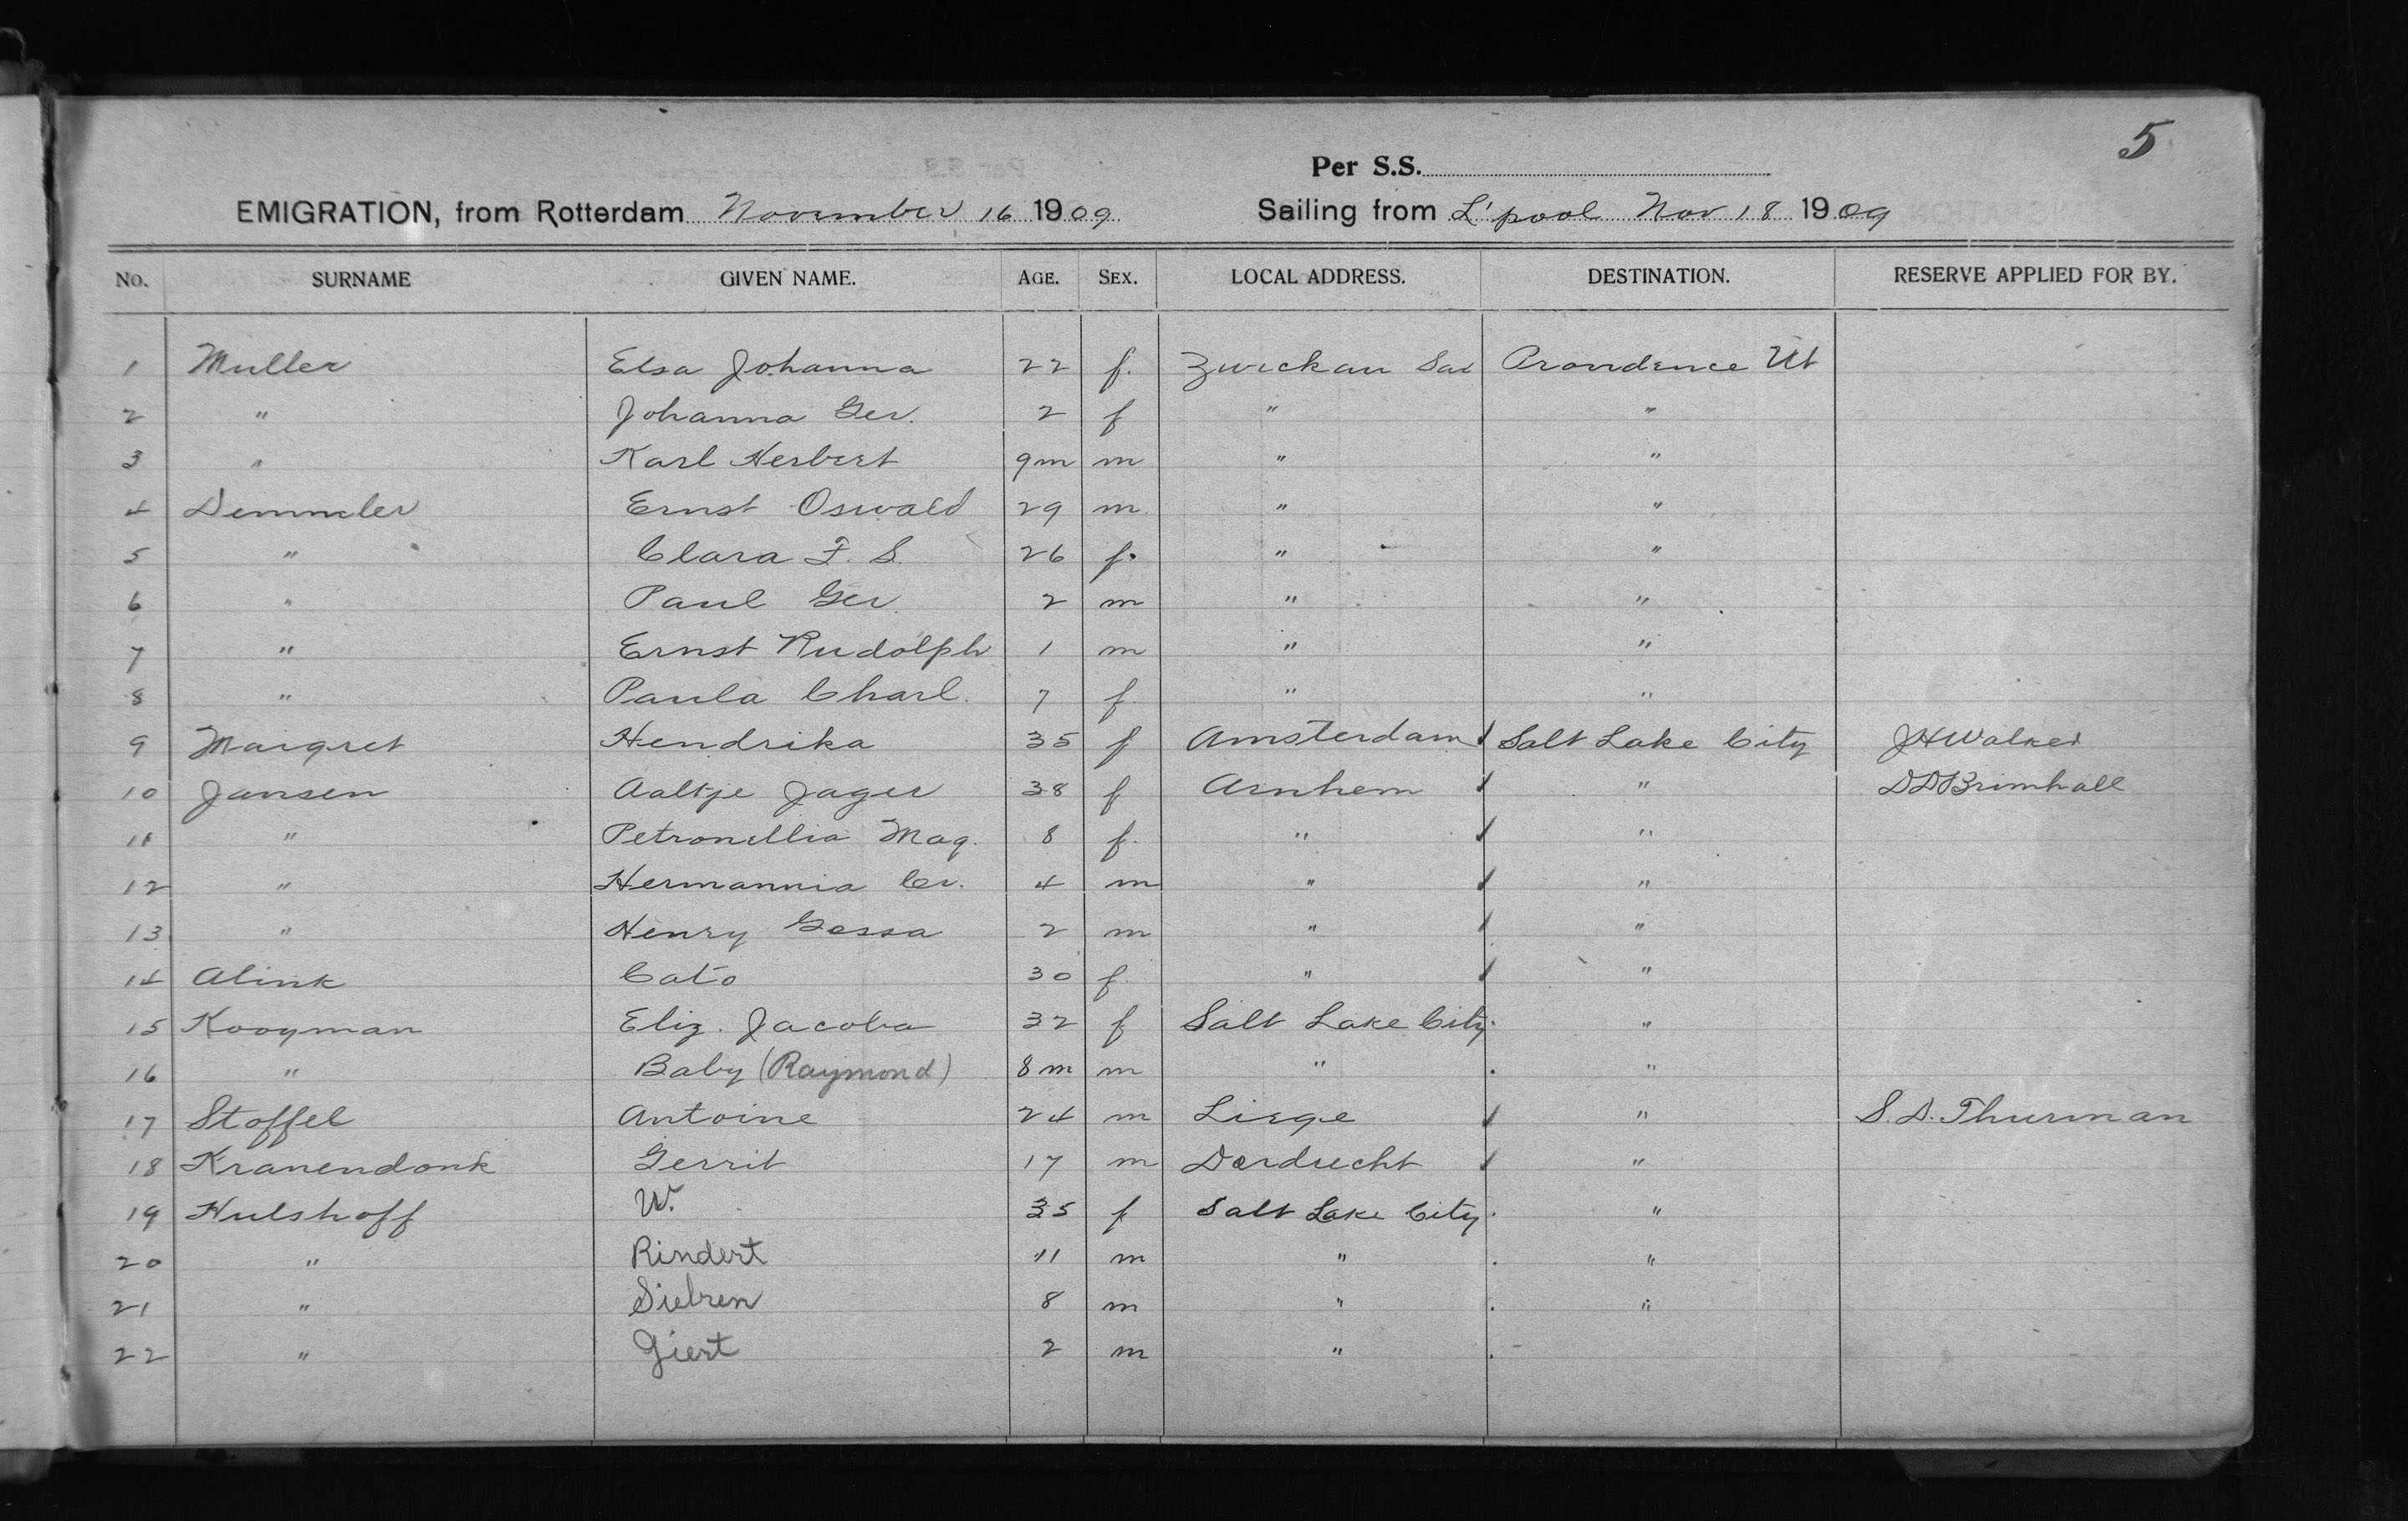 5
Per S.S.
EMIGRATION, from Rotterdam November 16 1909 Sailing from L'pool Nov 18 1909
No. SURNAME GIVEN NAME. AGE. SEX. LOCAL ADDRESS. DESTINATION. RESERVE APPLIED FOR BY.
1 Muller Elsa Johanna 22 f. Zwickau Sax Providence Ut
2 " Johanna Ger. 2 f " "
3 " Karl Herbert 9m m " "
4 Demmler Ernst Oswald 29 m " "
5 " Clara F. S. 26 f. " "
6 " Paul Ger. 2 m " "
7 " Ernst Rudolph 1 m " "
8 " Paula Charl. 7 f " "
9 Maigret Hendrika 35 f Amsterdam Salt Lake City JHWalker
10 Jansen Aaltje Jager 38 f Arnhem " DDBrimhall
11 " Petronellia Mag. 8 f. " "
12 " Hermannia Cr. 4 m " "
13 " Henry 2 m " "
14 Alink Cato 30 f. " "
15 Kooyman Eliz. Jacoba 32 f Salt Lake City "
16 " Baby (Raymond) 8m m " "
17 Stoffel Antoine 24 m Liege " S.D. Thurman
18 Kranendonk Gerrit 17 m Dordrecht "
19 Hulshoff W. 35 f Salt Lake City "
20 " Rindert 11 m " "
21 " Siebren 8 m " "
22 " Giert 2 m "